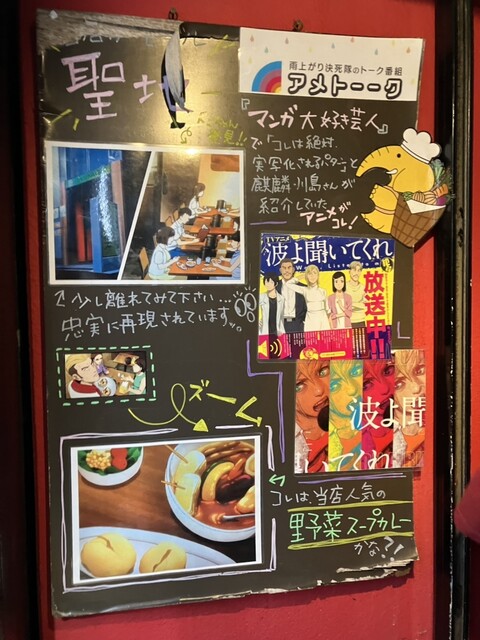 聖地
雨上がり決死隊のトーク番組
アメトーーク
『マンガ大好き芸人』
で「コレは絶対、
実写化されるパターン」と
麒麟・川島さんが
紹介していた
アニメが
コレ!
発見!!
TVアニメ
波よ聞いてくれ
放送中!!
少し離れてみて下さい…
忠実に再現されています。
ズーム
波よ聞
いてくれ
コレは、当店人気の
野菜スープカレー
かな?!